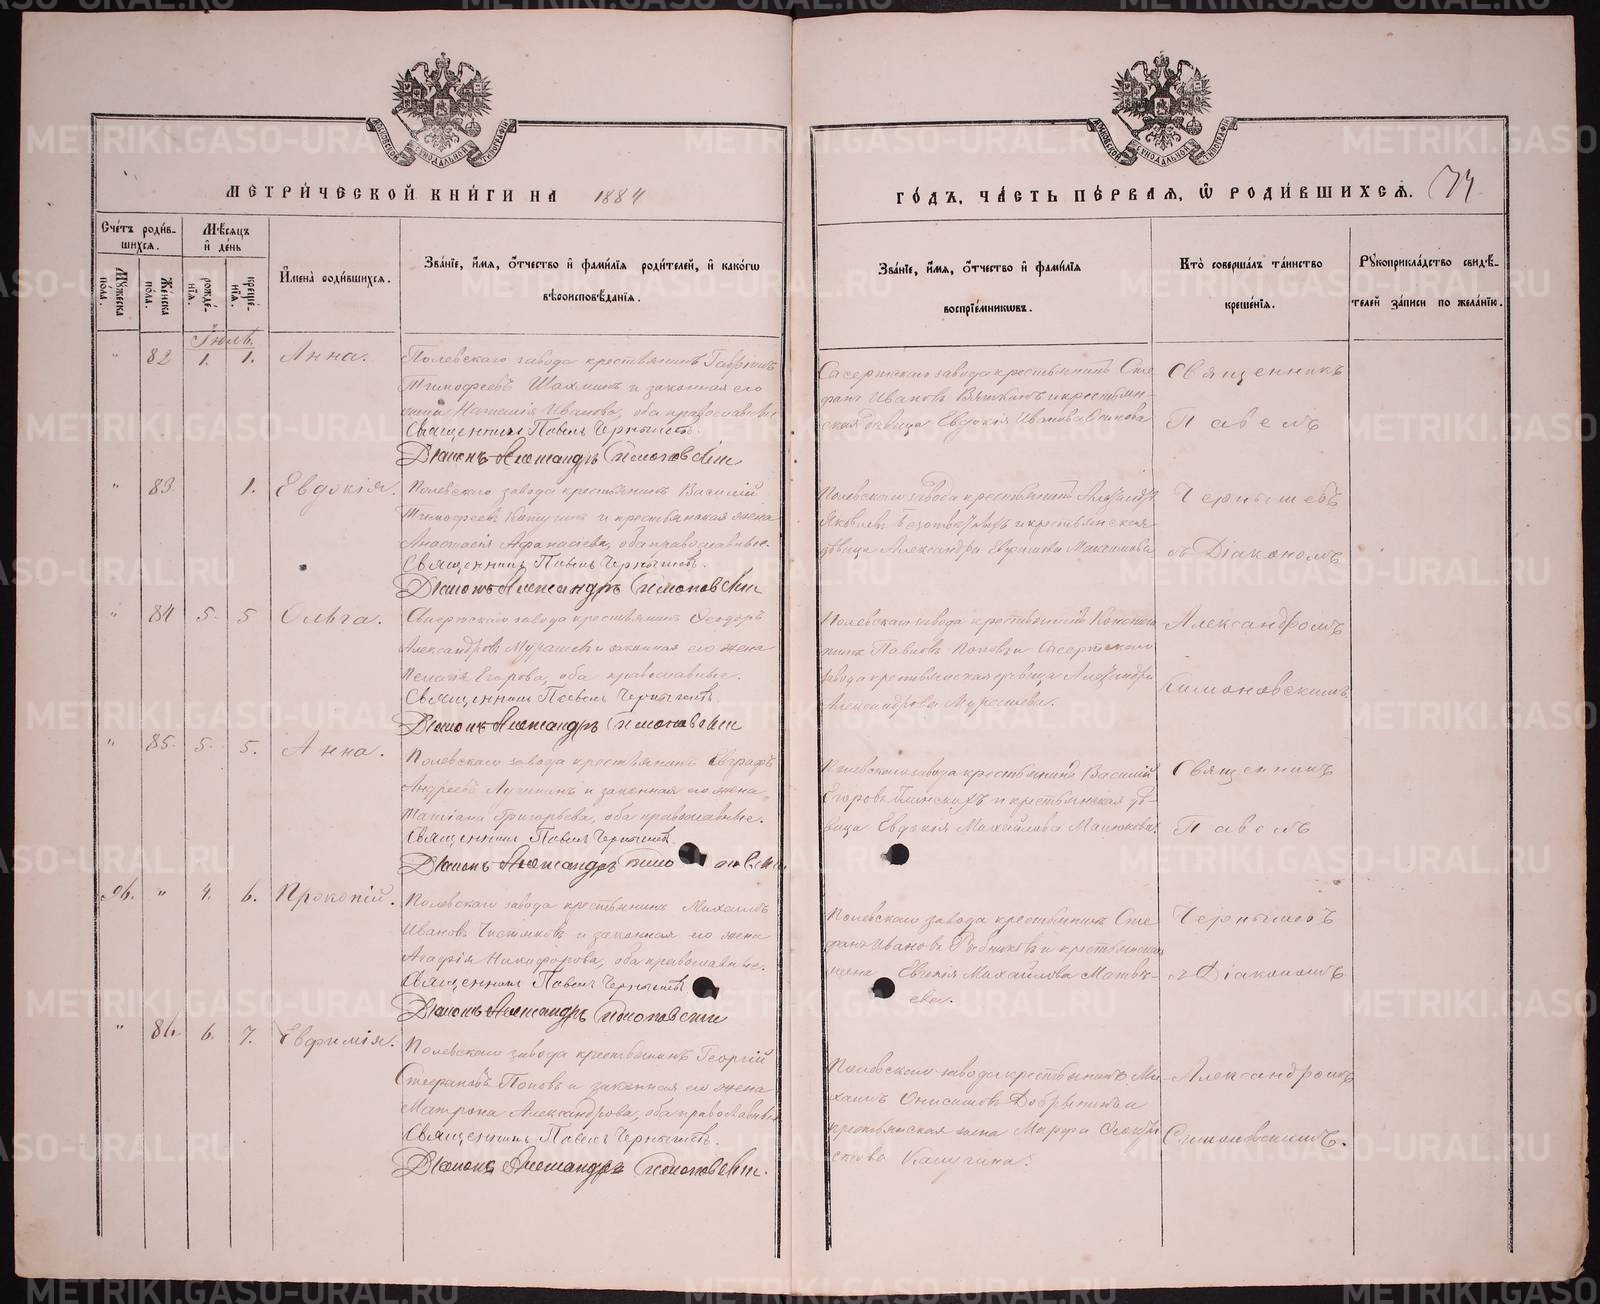 МЕТРИ́ЧЕСКОЙ КНИ́ГИ НА 1884
ГО́ДЪ, ЧА́СТЬ ПЕ́РВАЯ, Ѡ РОДИ́ВШИХСѦ. 74
Сче́тъ роди́в-
шихся.
Мѣ́сяцъ
и де́нь
Му́жеска
по́ла.
Же́нска
по́ла.
рожде́-
нїя.
креще́-
нїя.
И҆мена̀ роди́вшихся.
Зва́нїе, и҆́мя, ѻ҆́тчество и҆ фами́лїя роди́телей, и҆ како́гѡ
вѣроисповѣ́данїя.
Зва́нїе, и҆́мя, ѻ҆́тчество и҆ фами́лїя
воспрїе́мникѡвъ.
Кто̀ соверша́лъ та́инство
креще́нїя.
Рꙋкоприкла́дство свидѣ́-
телей за́писи по жела́нїю.
Іюль.
" 82 1. 1. Анна.
Полевскаго завода крестьянинъ Гавріилъ
Тимофеевъ Шахминъ и законная его
жена Наталія Иванова, оба православные
Священникъ Павелъ Чернышевъ.
Діаконъ Александръ Симоновскій
Сысертскаго завода крестьянинъ Сте
фанъ Ивановъ Вяткинъ и крестьян-
ская дѣвица Евдокія Иванова
Священникъ
Павелъ
" 83 1. Евдокія.
Полевскаго завода крестьянинъ Василій
Тимофеевъ и крестьянская жена
Анастасія Афанасіева, оба православные.
Священникъ Павелъ Чернышевъ.
Діаконъ Александръ Симоновскій
Полевскаго завода крестьянинъ Александръ
Яковлевъ и крестьянская
дѣвица Александра Ефимова Максимова
Чернышевъ
съ Діакономъ
" 84 5. 5 Ольга.
Сысертскаго завода крестьянинъ Ѳеодоръ
Александровъ Мурашевъ и законная его жена
Пелагія Егорова, оба православные.
Священникъ Павелъ Чернышевъ
Діаконъ Александръ Симоновскій
Полевскаго завода крестьянинъ Констан
тинъ Павловъ Поповъ и Сысертскаго
завода крестьянская дѣвица Александра
Александрова Мурашева.
Александромъ
Симоновскимъ
" 85. 5. 5. Анна.
Полевскаго завода крестьянинъ Евграфъ
Андреевъ Лучининъ и законная его жена
Татіана Григорьева, оба православные.
Священникъ Павелъ Чернышевъ
Діаконъ Александръ Симоновскій.
Полевскаго завода крестьянинъ Василій
Егоровъ Глинскихъ и крестьянская дѣ-
вица Евдокія Михайлова Манюкова.
Священникъ
Павелъ
96. " 4. 6. Прокопій.
Полевскаго завода крестьянинъ Михаилъ
Ивановъ Чистяковъ и законная его жена
Агафія Никифорова, оба православные.
Священникъ Павелъ Чернышевъ
Діаконъ Александръ Симоновскій
Полевскаго завода крестьянинъ Сте
фанъ Ивановъ и крестьянская
жена Евгенія Михайлова Матвѣ-
ева.
Чернышевъ
съ Діакономъ
" 86. 6. 7. Евфимія.
Полевскаго завода крестьянинъ Георгій
Стефановъ Поповъ и законная его жена
Матрона Александрова, оба православные
Священникъ Павелъ Чернышевъ.
Діаконъ Александръ Симоновскій.
Полевскаго завода крестьянинъ Ми
хаилъ Онисимовъ Добрынинъ и
крестьянская жена Марфа
Калугина.
Александромъ
Симоновскимъ.
METRIKI.GASO-URAL.RU